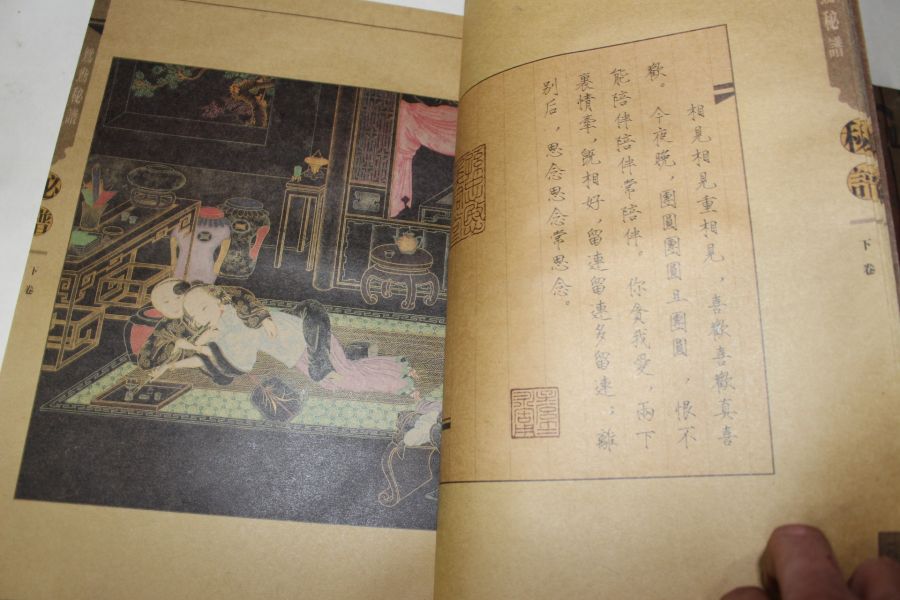 相見相見重相見，喜歡喜歡真喜
歡。今夜晚，團圓團圓且團圓，恨不
能陪伴陪伴常陪伴。你貪我愛，兩下
裏情牽，既相好，留連留連多留連；離
别后，思念思念常思念。
秘譜
下卷
秘譜
下卷